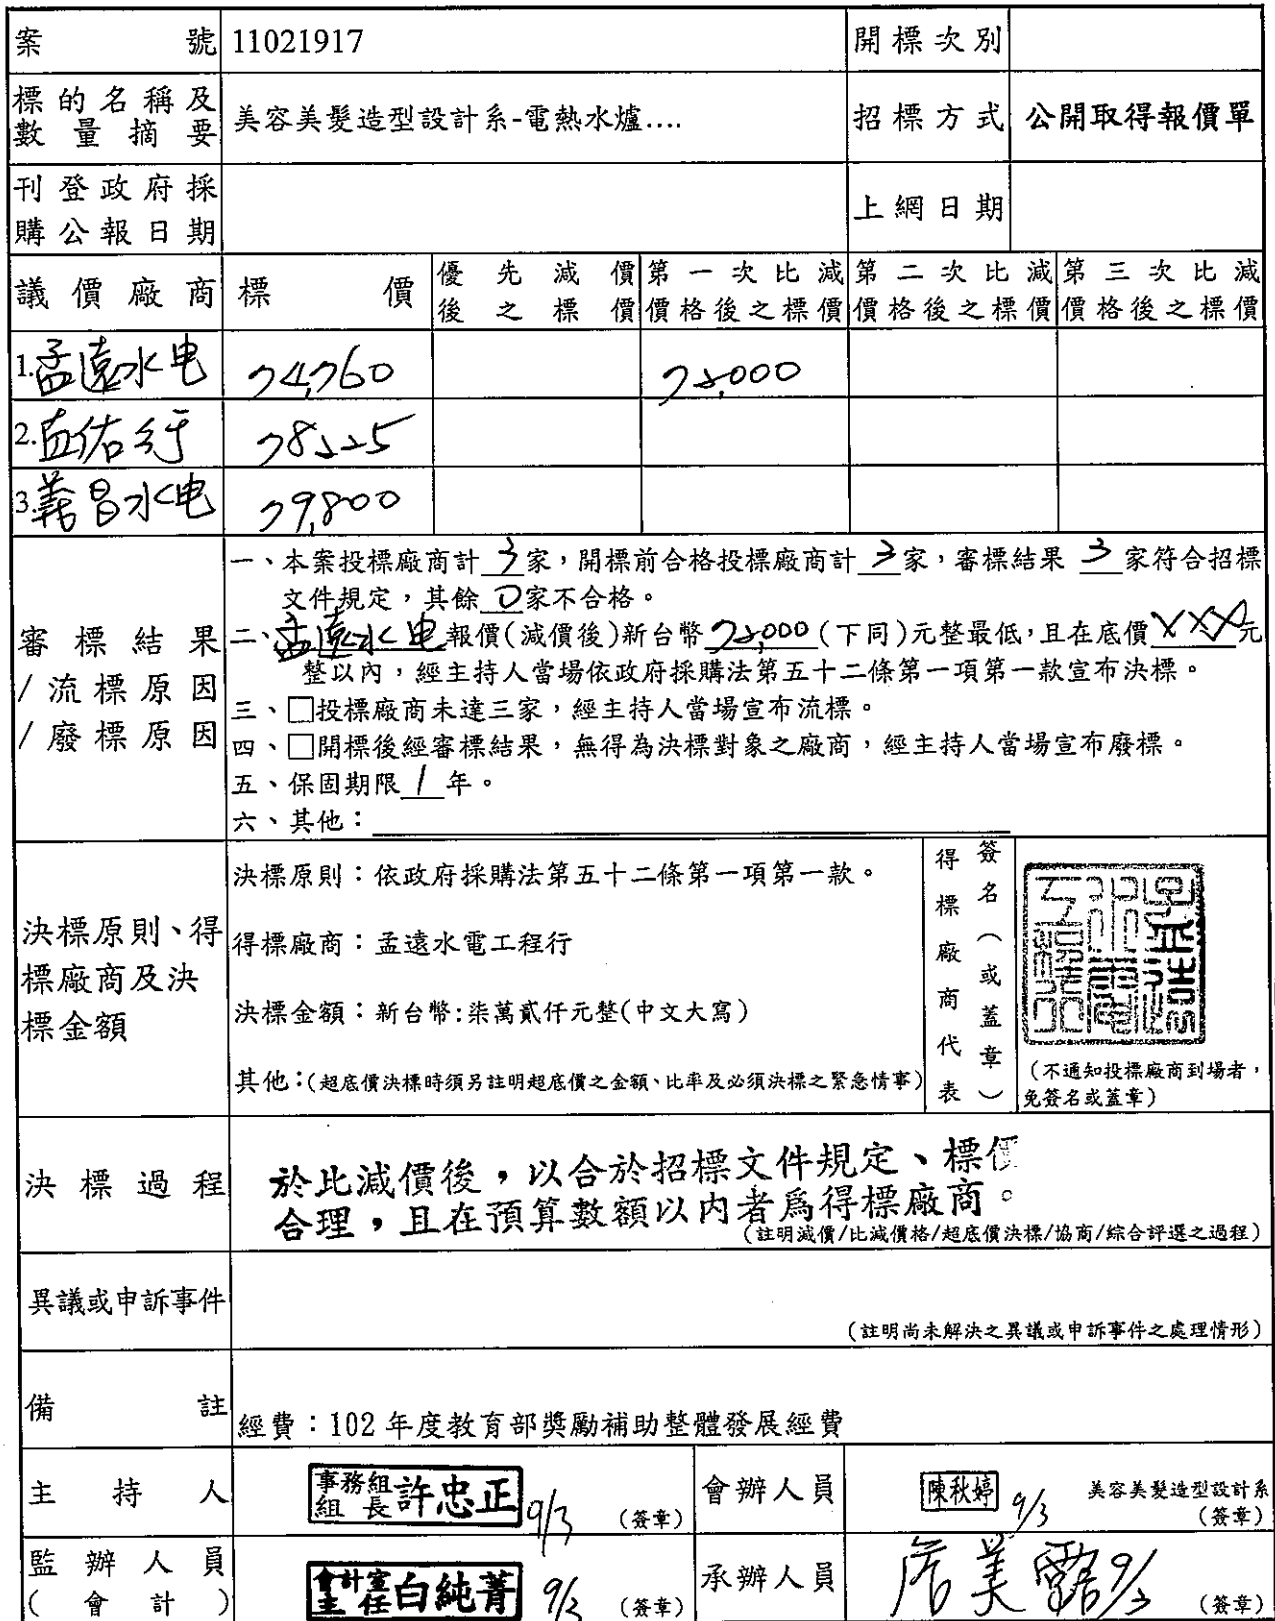 案號 11021917 開標次別
標的名稱及數量摘要 美容美髮造型設計系-電熱水爐.... 招標方式 公開取得報價單
刊登政府採購公報日期 上網日期
議價廠商 標價 優先減價後之標價 第一次比減價格後之標價 第二次比減價格後之標價 第三次比減價格後之標價
1.孟遠水电 74,760 72,000
2.佑行 78225
3.義昌水电 79,800
審標結果/流標原因/廢標原因
一、本案投標廠商計 3 家，開標前合格投標廠商計 3 家，審標結果 3 家符合招標
文件規定，其餘 0 家不合格。
二、孟遠水电報價(減價後)新台幣 72,000 (下同)元整最低，且在底價 XXX 元
整以內，經主持人當場依政府採購法第五十二條第一項第一款宣布決標。
三、□投標廠商未達三家，經主持人當場宣布流標。
四、□開標後經審標結果，無得為決標對象之廠商，經主持人當場宣布廢標。
五、保固期限 1 年。
六、其他：
決標原則、得標廠商及決標金額
決標原則：依政府採購法第五十二條第一項第一款。
得標廠商：孟遠水電工程行
決標金額：新台幣:柒萬貳仟元整(中文大寫)
其他：(超底價決標時須另註明超底價之金額、比率及必須決標之緊急情事)
得標廠商代表簽名（或蓋章）
(不通知投標廠商到場者，
免簽名或蓋章)
決標過程
於比減價後，以合於招標文件規定、標價
合理，且在預算數額以內者為得標廠商。
(註明減價/比減價格/超底價決標/協商/綜合評選之過程)
異議或申訴事件
(註明尚未解決之異議或申訴事件之處理情形)
備註 經費：102 年度教育部獎勵補助整體發展經費
主持人 事務組組長 許忠正 9/3 (簽章) 會辦人員 陳秋婷 9/3 美容美髮造型設計系 (簽章)
監辦人員(會計) 會計室主任 白純菁 9/3 (簽章) 承辦人員 詹美露 9/3 (簽章)